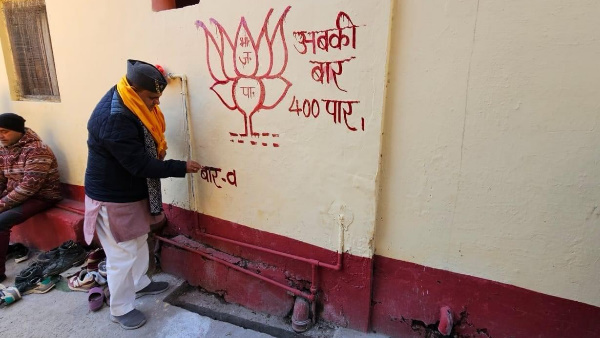 भा
ज.
पा.
अबकी
बार
400 पार।
बार-व